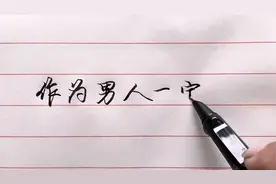 作为男人一定